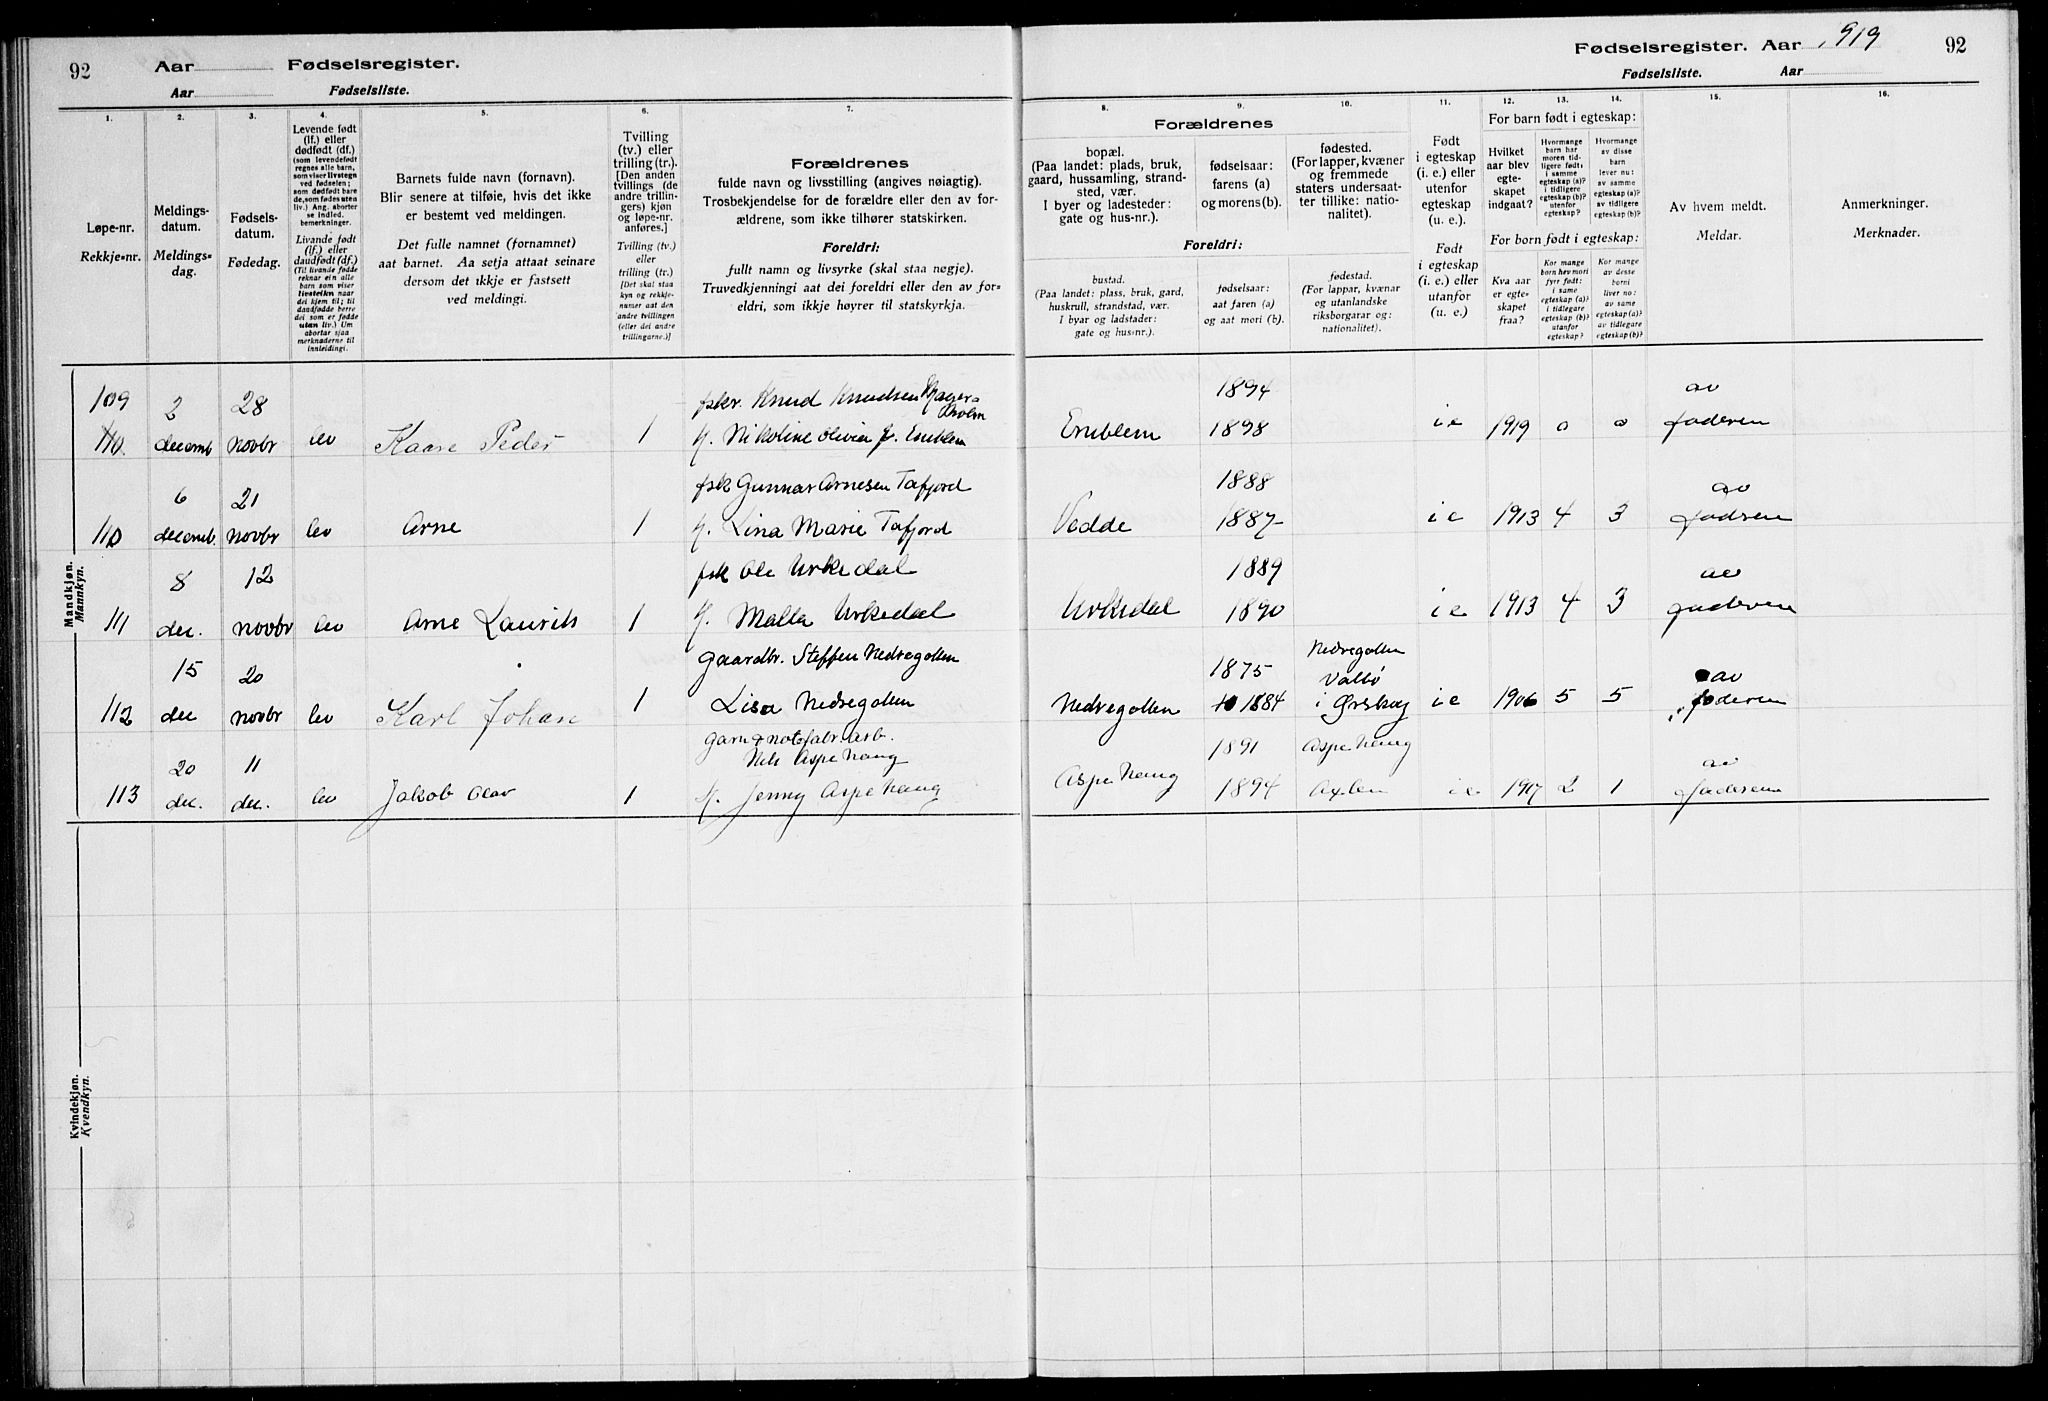 92 Aar Fødselsregister.
Aar Fødselsliste.
Fødselsregister. Aar 1919 92
Fødselsliste. Aar
1.
Løpe-nr.
Rekkje-nr.
2.
Meldings-
datum.
Meldings-
dag.
3.
Fødsels-
datum.
Fødedag.
4.
Levende født
(lf.) eller
dødfødt (df.)
(som levendefødt
regnes alle barn,
som viser livstegn
ved fødselen;
som dødfødt bare
de, som fødes uten
liv.) Ang. aborter
se indled.
bemerkninger.
Livande født
(lf.) eller
daudfødt (df.)
(Til livande fødde
reknar ein alle
barn som viser
livsteikn naar
dei kjem til; til
daudfødde berre
dei som er fødde
utan liv.) Um
abortar sjaa
merknaderne til
innleidingi.
5.
Barnets fulde navn (fornavn).
Blir senere at tilføie, hvis det ikke
er bestemt ved meldingen.
Det fulle namnet (fornamnet)
aat barnet. Aa setja attaat seinare
dersom det ikkje er fastsett
ved meldingi.
6.
Tvilling
(tv.) eller
trilling (tr.).
[Den anden
tvillings (de
andre trillin-
gers) kjøn
og løpe-nr.
anføres.]
Tvilling (tv.)
eller
trilling (tr.)
[Det skal staa
kyn og rekkje-
numer aat den
andre tvillingen
(eller dei andre
trillingarne.)]
7.
Forældrenes
fulde navn og livsstilling (angives nøiagtig).
Trosbekjendelse for de forældre eller den av for-
ældrene, som ikke tilhører statskirken.
Foreldri:
fullt namn og livsyrke (skal staa nøgje).
Truvedkjenningi aat dei foreldri eller den av for-
eldri, som ikkje høyrer til statskyrkja.
8.
Forældrenes
bopæl.
(Paa landet: plads, bruk,
gaard, hussamling, strand-
sted, vær.
I byer og ladesteder:
gate og hus-nr.).
Foreldri:
bustad.
(Paa landet: plass, bruk, gard,
huskrull, strandstad, vær.
I byar og ladstader:
gate og hus-nr.).
9.
fødselsaar:
farens (a)
og morens (b).
fødselsaar:
aat faren (a)
og aat mori (b).
10.
fødested.
(For lapper, kvæner
og fremmede
staters undersaat-
ter tillike: natio-
nalitet).
fødestad.
(For lappar, kvænar
og utanlandske
riksborgarar og :
nationalitet).
11.
Født
i egteskap
(i. e.) eller
utenfor
egteskap
(u. e.).
Født
i egteskap
(i. e.) eller
utanfor
(u. e.)
12.
For barn født i egteskap:
Hvilket
aar blev
egte-
skapet
indgaat?
For born født i egteskap:
Kva aar
er egte-
skapet
fraa?
13.
Hvormange
barn har
moren tid-
ligere født:
i samme
egteskap (a)?
i tidligere
egteskap (b)?
utenfor
egteskap?
Kor mange
born hev mori
fyrr født:
i same
egteskap (a)?
i tidlegare
egteskap (b)?
utanfor
egteskap?
14.
Hvormange
av disse
barn
lever nu:
av samme
egteskap (a)?
av tidligere
egteskap (b)?
Kor mange
av desse
borni
liver no:
av same
egteskap (a)?
av tidlegare
egteskap (b)?
15.
Av hvem meldt.
Meldar.
16.
Anmerkninger.
Merknader.
Mandkjøn.
Mannkyn.
109 2 28 fskr. Knud Knudsen Mager- 1894 av
110. decemb novbr lev Kaare Peder 1 holm
H. Nikoline Oline f. Emblem Emblem 1898 i e 1919 0 0 faderen
6 21 fsk Gunnar Arnesen Tafjord 1888 av
110 decemb novbr lev Arne 1 H. Lina Marie Tafjord Vedde 1887 i e 1913 4 3 faderen
8 12 fsk Ole Urkedal 1889 av
111 dec. novbr lev Arne Laurits 1 H. Malla Urkedal Urkedal 1890 i e 1913 4 3 faderen
15 20 gaardbr. Steffen Nedregotten 1875 Nedregotten av
Valbø
112 dec novbr lev Karl Johan 1 Lisa Nedregotten Nedregotten 1884 i Ørskog i e 1906 5 5 faderen
garn & notfabr.arb.
20 11 Nils Aspehaug 1891 Aspehaug av
113 dec. dec. lev Jakob Olav 1 H. Jenny Aspehaug Aspehaug 1894 Axlen i e 1917 2 1 faderen
Kvindekjøn.
Kvendkyn.